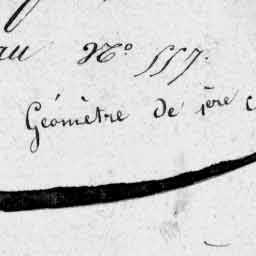 au N.º 557.
Géomètre de 1ère c